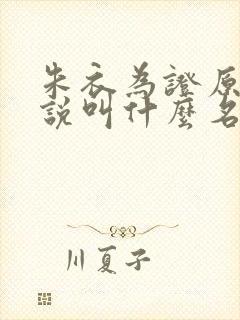 朱衣為證原
說叫什麼名
川夏子